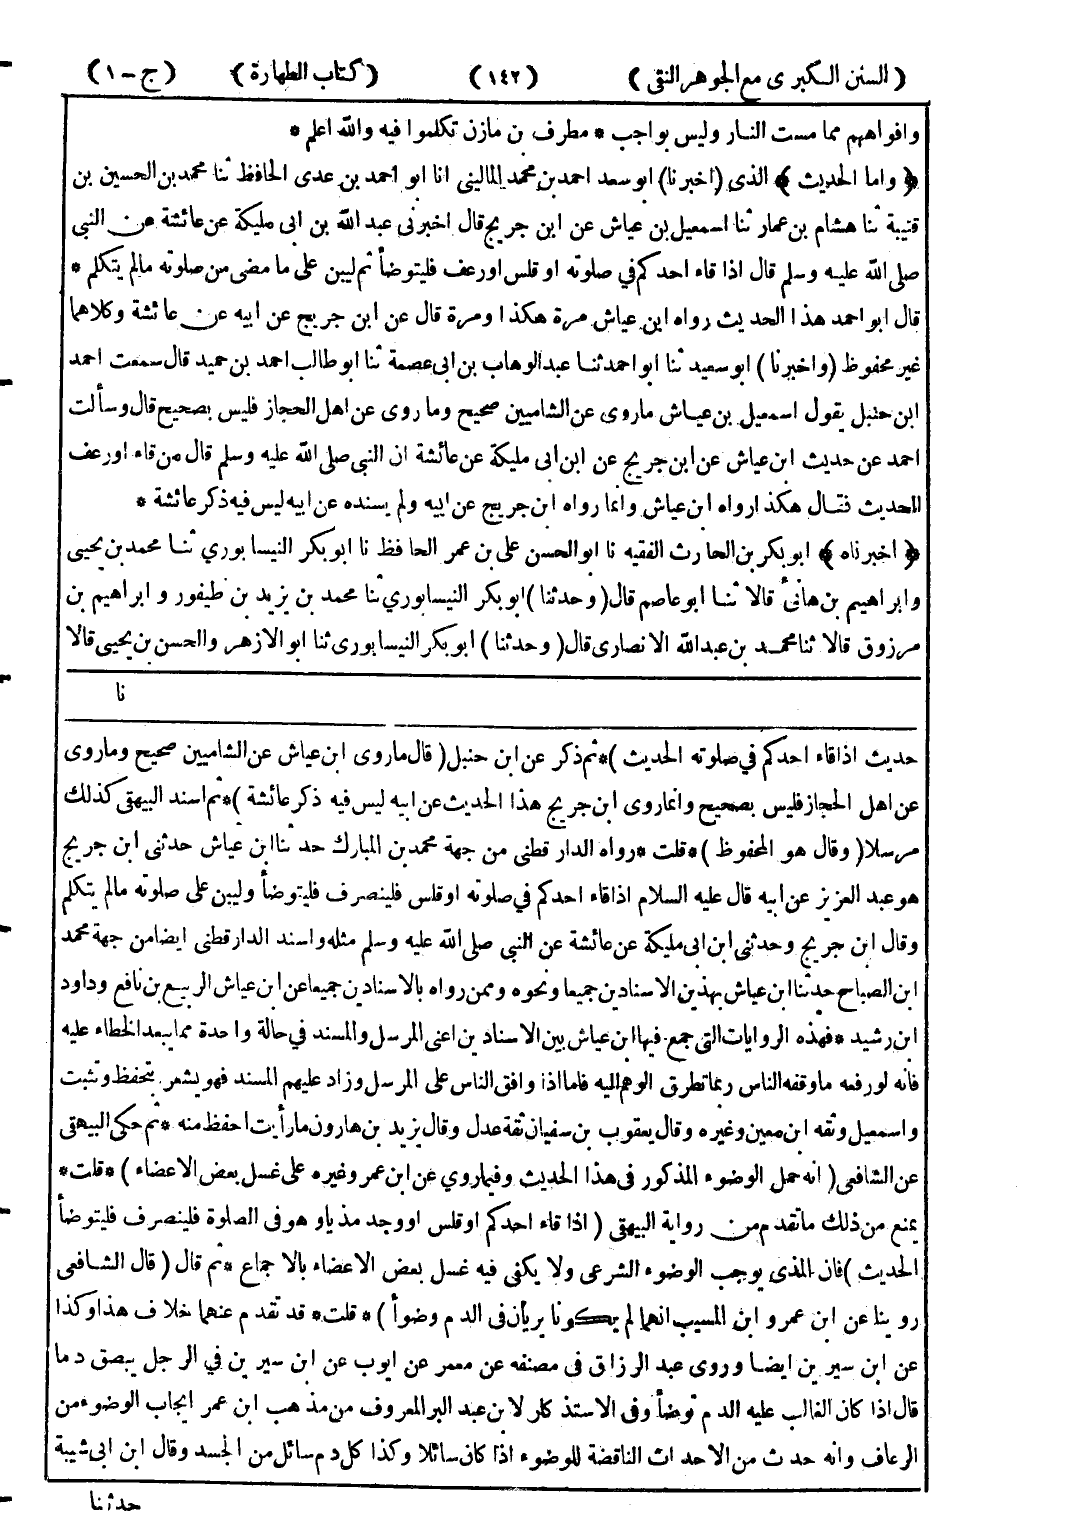 ( السنن الكبرى مع الجوهر النقى ) ( ١٤٢ ) ( كتاب الطهارة ) ( ج - ١ )
وافواههم مما مست النار وليس بواجب * مطرف بن مازن تكلموا فيه والله اعلم *
﴿ واما الحديث ﴾ الذى (اخبرنا) ابو سعد احمد بن محمد المالينى انا ابو احمد بن عدى الحافظ ثنا محمد بن الحسين بن
قتيبة ثنا هشام بن عمار ثنا اسمعيل بن عياش عن ابن جريج قال اخبرنى عبد الله بن ابى مليكة عن عائشة عن النبى
صلى الله عليه وسلم قال اذا قاء احدكم فى صلوته او قلس اورعف فليتوضأ ثم ليبن على ما مضى من صلوته مالم يتكلم *
قال ابو احمد هذا الحديث رواه ابن عياش مرة هكذا ومرة قال عن ابن جريج عن ابيه عن عائشة وكلاهما
غير محفوظ (واخبرنا) ابو سعيد ثنا ابو احمد ثنا عبدالوهاب بن ابى عصمة ثنا ابو طالب احمد بن حميد قال سمعت احمد
ابن حنبل يقول اسمعيل بن عياش ماروى عن الشاميين صحيح وما روى عن اهل الحجاز فليس بصحيح قال وسألت
احمد عن حديث ابن عياش عن ابن جريج عن ابن ابى مليكة عن عائشة ان النبى صلى الله عليه وسلم قال من قاء اورعف
الحديث فقال هكذا رواه ابن عياش وانما رواه ابن جريج عن ابيه ولم يسنده عن ابيه ليس فيه ذكر عائشة *
﴿ اخبرناه ﴾ ابو بكر بن الحارث الفقيه نا ابو الحسن على بن عمر الحافظ نا ابو بكر النيسابوري ثنا محمد بن يحيى
وابراهيم بن هانئ قالا ثنا ابو عاصم قال (وحدثنا) ابو بكر النيسابوري ثنا محمد بن يزيد بن طيفور وابراهيم بن
مرزوق قالا ثنا محمد بن عبد الله الانصارى قال (وحدثنا) ابو بكر النيسابورى ثنا ابو الازهر والحسن بن يحيى قالا
نا
حديث اذا قاء احدكم فى صلوته الحديث ) * ثم ذكر عن ابن حنبل ( قال ماروى ابن عياش عن الشاميين صحيح وماروى
عن اهل الحجاز فليس بصحيح وانما روى ابن جريج هذا الحديث عن ابيه ليس فيه ذكر عائشة ) * ثم اسند البيهقى كذلك
مرسلا ( وقال هو المحفوظ ) * قلت * رواه الدارقطنى من جهة محمد بن المبارك حدثنا ابن عياش حدثنى ابن جريج
هو عبد العزيز عن ابيه قال عليه السلام اذا قاء احدكم فى صلوته او قلس فلينصرف فليتوضأ وليبن على صلوته مالم يتكلم
وقال ابن جريج وحدثنى ابن ابى مليكة عن عائشة عن النبى صلى الله عليه وسلم مثله واسند الدارقطنى ايضا من جهة محمد
ابن الصباح حدثنا ابن عياش بهذين الاسنادين جميعا ونحوه وممن رواه بالاسنادين جميعا عن ابن عياش الربيع بن نافع وداود
ابن رشيد * فهذه الروايات التى جمع فيها ابن عياش بين الاسنادين اعنى المرسل والمسند فى حالة واحدة مما يبعد الخطاء عليه
فانه لو رفعه ماوقفه الناس ربما تطرق الوهم اليه فاما اذا وافق الناس على المرسل وزاد عليهم المسند فهو يشعر بتحفظ وتثبت
واسمعيل وثقه ابن معين وغيره وقال يعقوب بن سفيان ثقة عدل وقال يزيد بن هارون ما رأيت احفظ منه * ثم حكى البيهقى
عن الشافعى ( انه حمل الوضوء المذكور فى هذا الحديث وفيما روي عن ابن عمر وغيره على غسل بعض الاعضاء ) * قلت *
يمنع من ذلك ما تقدم من رواية البيهقى ( اذا قاء احدكم او قلس او وجد مذيا وهو فى الصلوة فلينصرف فليتوضأ
الحديث ) فان المذى يوجب الوضوء الشرعى ولا يكفى فيه غسل بعض الاعضاء بالاجماع * ثم قال ( قال الشافعى
روينا عن ابن عمر و ابن المسيب انهما لم يكونا يريان فى الدم وضوأ ) * قلت * قد تقدم عنهما خلاف هذا وكذا
عن ابن سيرين ايضا وروى عبد الرزاق فى مصنفه عن معمر عن ايوب عن ابن سيرين في الرجل يبصق دما
قال اذا كان الغالب عليه الدم توضأ وفى الاستذكار لابن عبد البر المعروف من مذهب ابن عمر ايجاب الوضوء من
الرعاف وانه حدث من الاحداث الناقضة للوضوء اذا كان سائلا وكذا كل دم سائل من الجسد وقال ابن ابى شيبة
حدثنا